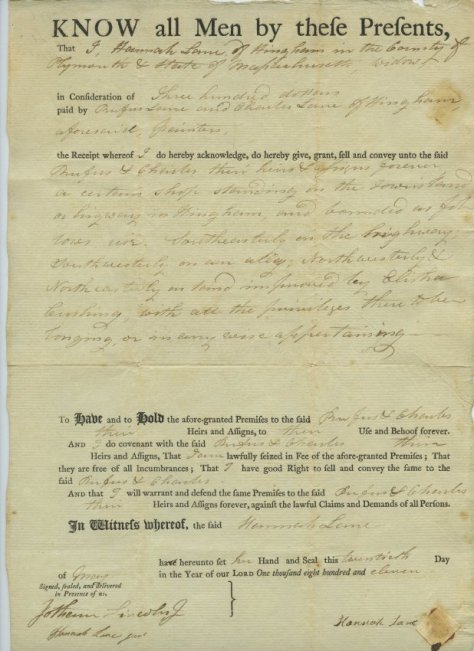 KNOW all Men by theſe Preſents,
That I, Hannah Lane of Hingham in the County of
Plymouth & State of Massachusetts, widow
in Conſideration of Three hundred dollars
paid by Rufus Lane and Charles Lane of Hingham
aforesaid, painters,
the Receipt whereof I do hereby acknowledge, do hereby give, grant, ſell and convey unto the ſaid
Rufus & Charles their heirs & assigns forever
a certain shop standing on the town land
or highway in Hingham, and bounded as fol
lows viz. Southeasterly on the highway
Southwesterly on an alley, Northwesterly &
Northeasterly on land improved by Elisha
Cushing, with all the privileges there to be
longing, or in any wise appertaining
To Have and to Hold the afore-granted Premiſes to the ſaid Rufus & Charles
their Heirs and Aſſigns, to their Uſe and Behoof forever.
AND I do covenant with the ſaid Rufus & Charles their
Heirs and Aſſigns, That I am lawfully ſeized in Fee of the afore-granted Premiſes; That
they are free of all Incumbrances; That I have good Right to ſell and convey the ſame to the
ſaid Rufus & Charles
AND that I will warrant and defend the ſame Premiſes to the ſaid Rufus & Charles
their Heirs and Aſſigns forever, againſt the lawful Claims and Demands of all Perſons.
In Witneſs whereof, the ſaid Hannah Lane
have hereunto ſet her Hand and Seal this twentieth Day
of in the Year of our LORD One thouſand eight hundred and eleven
Signed, ſealed, and delivered
in Preſence of us,
Jotham Lincoln Jr
Hannah Lane junr
Hannah Lane